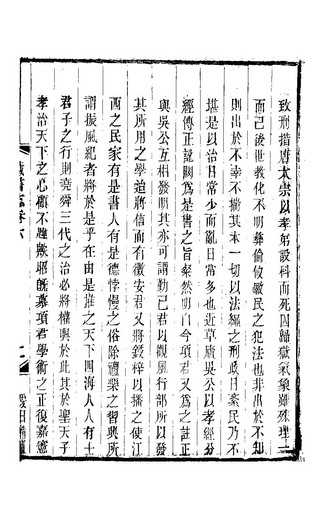 致刑措唐太宗以孝弟設科而死囚歸獄氣象雖殊理一
而已後世敎化不明彝倫攸斁民之犯法也非出於不知
則出於不幸不揣其本一切以法繩之刑政日紊民乃不
堪是以治日常少而亂日常多也近草廬吳公以孝經分
經傳正訛闕爲是書之旨粲然明白今項君又爲之註正
與吳公互相發明其亦可謂勤已君以觀風行部所以發
其所用之學迨將信而有徵安君又將鋟梓以播之使江
西之民家有是書人有是德悖慢之俗除禮樂之習興所
謂振風紀者將於是乎在由是推之天下四海人人有士
君子之行則堯舜三代之治必將權輿於此其於聖天子
孝治天下之心顧不韙歟耶旣嘉項君學術之正復嘉憲